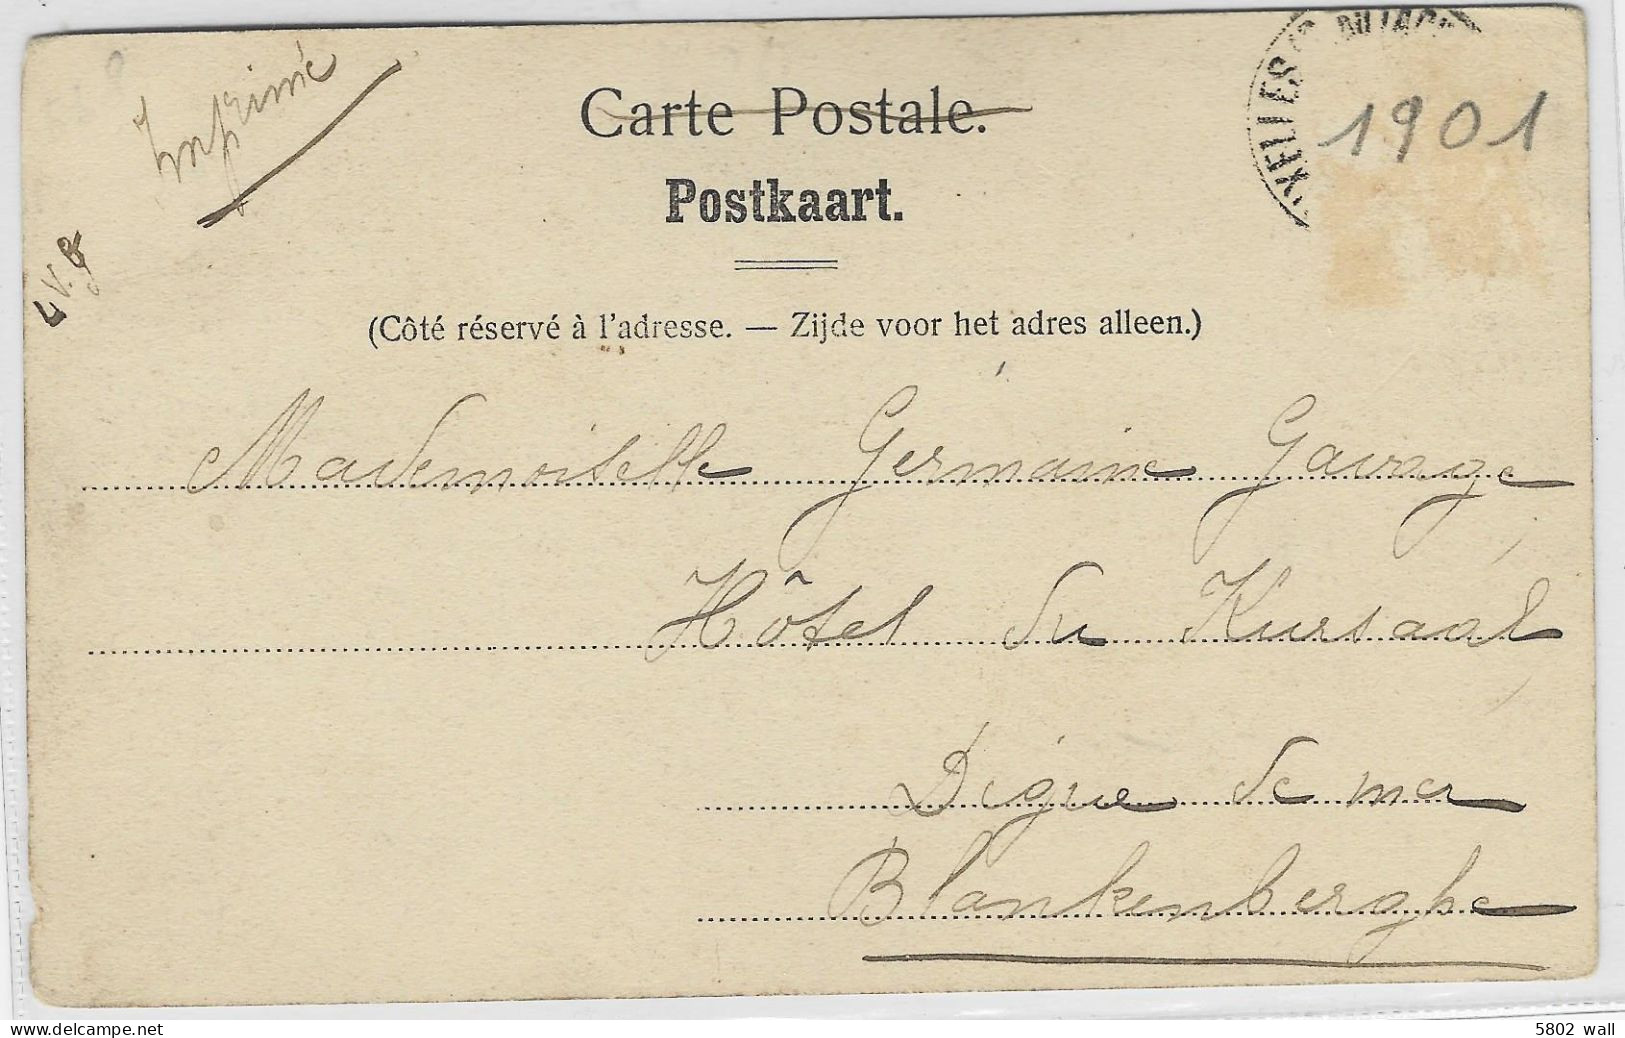 Imprimé
Carte Postale.
Postkaart.
1901
L V. B
(Côté réservé à l'adresse. — Zijde voor het adres alleen.)
Mademoiselle Germaine Gavage
Hôtel du Kursaal
Digue de mer
Blankenberghe
5802 wall